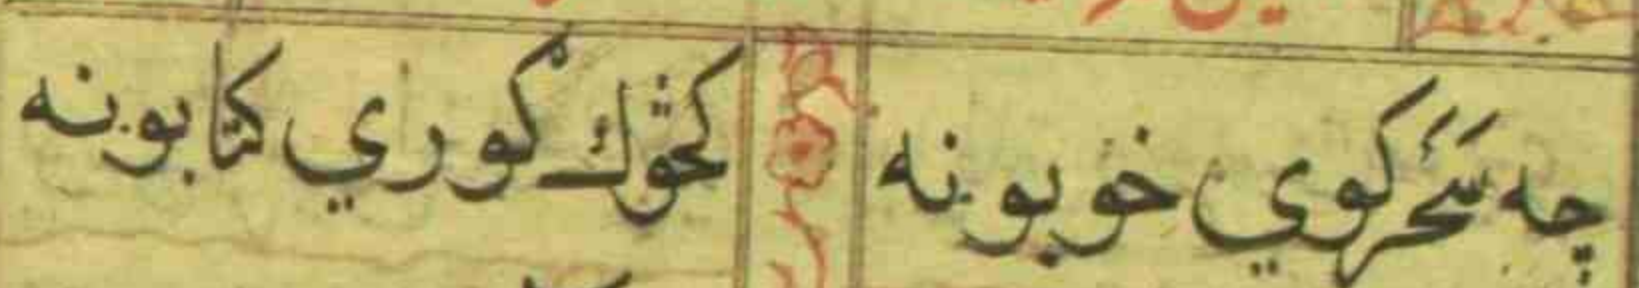 چه سَحَر کوي خوبونه
کڅوك ګوري کتابونه